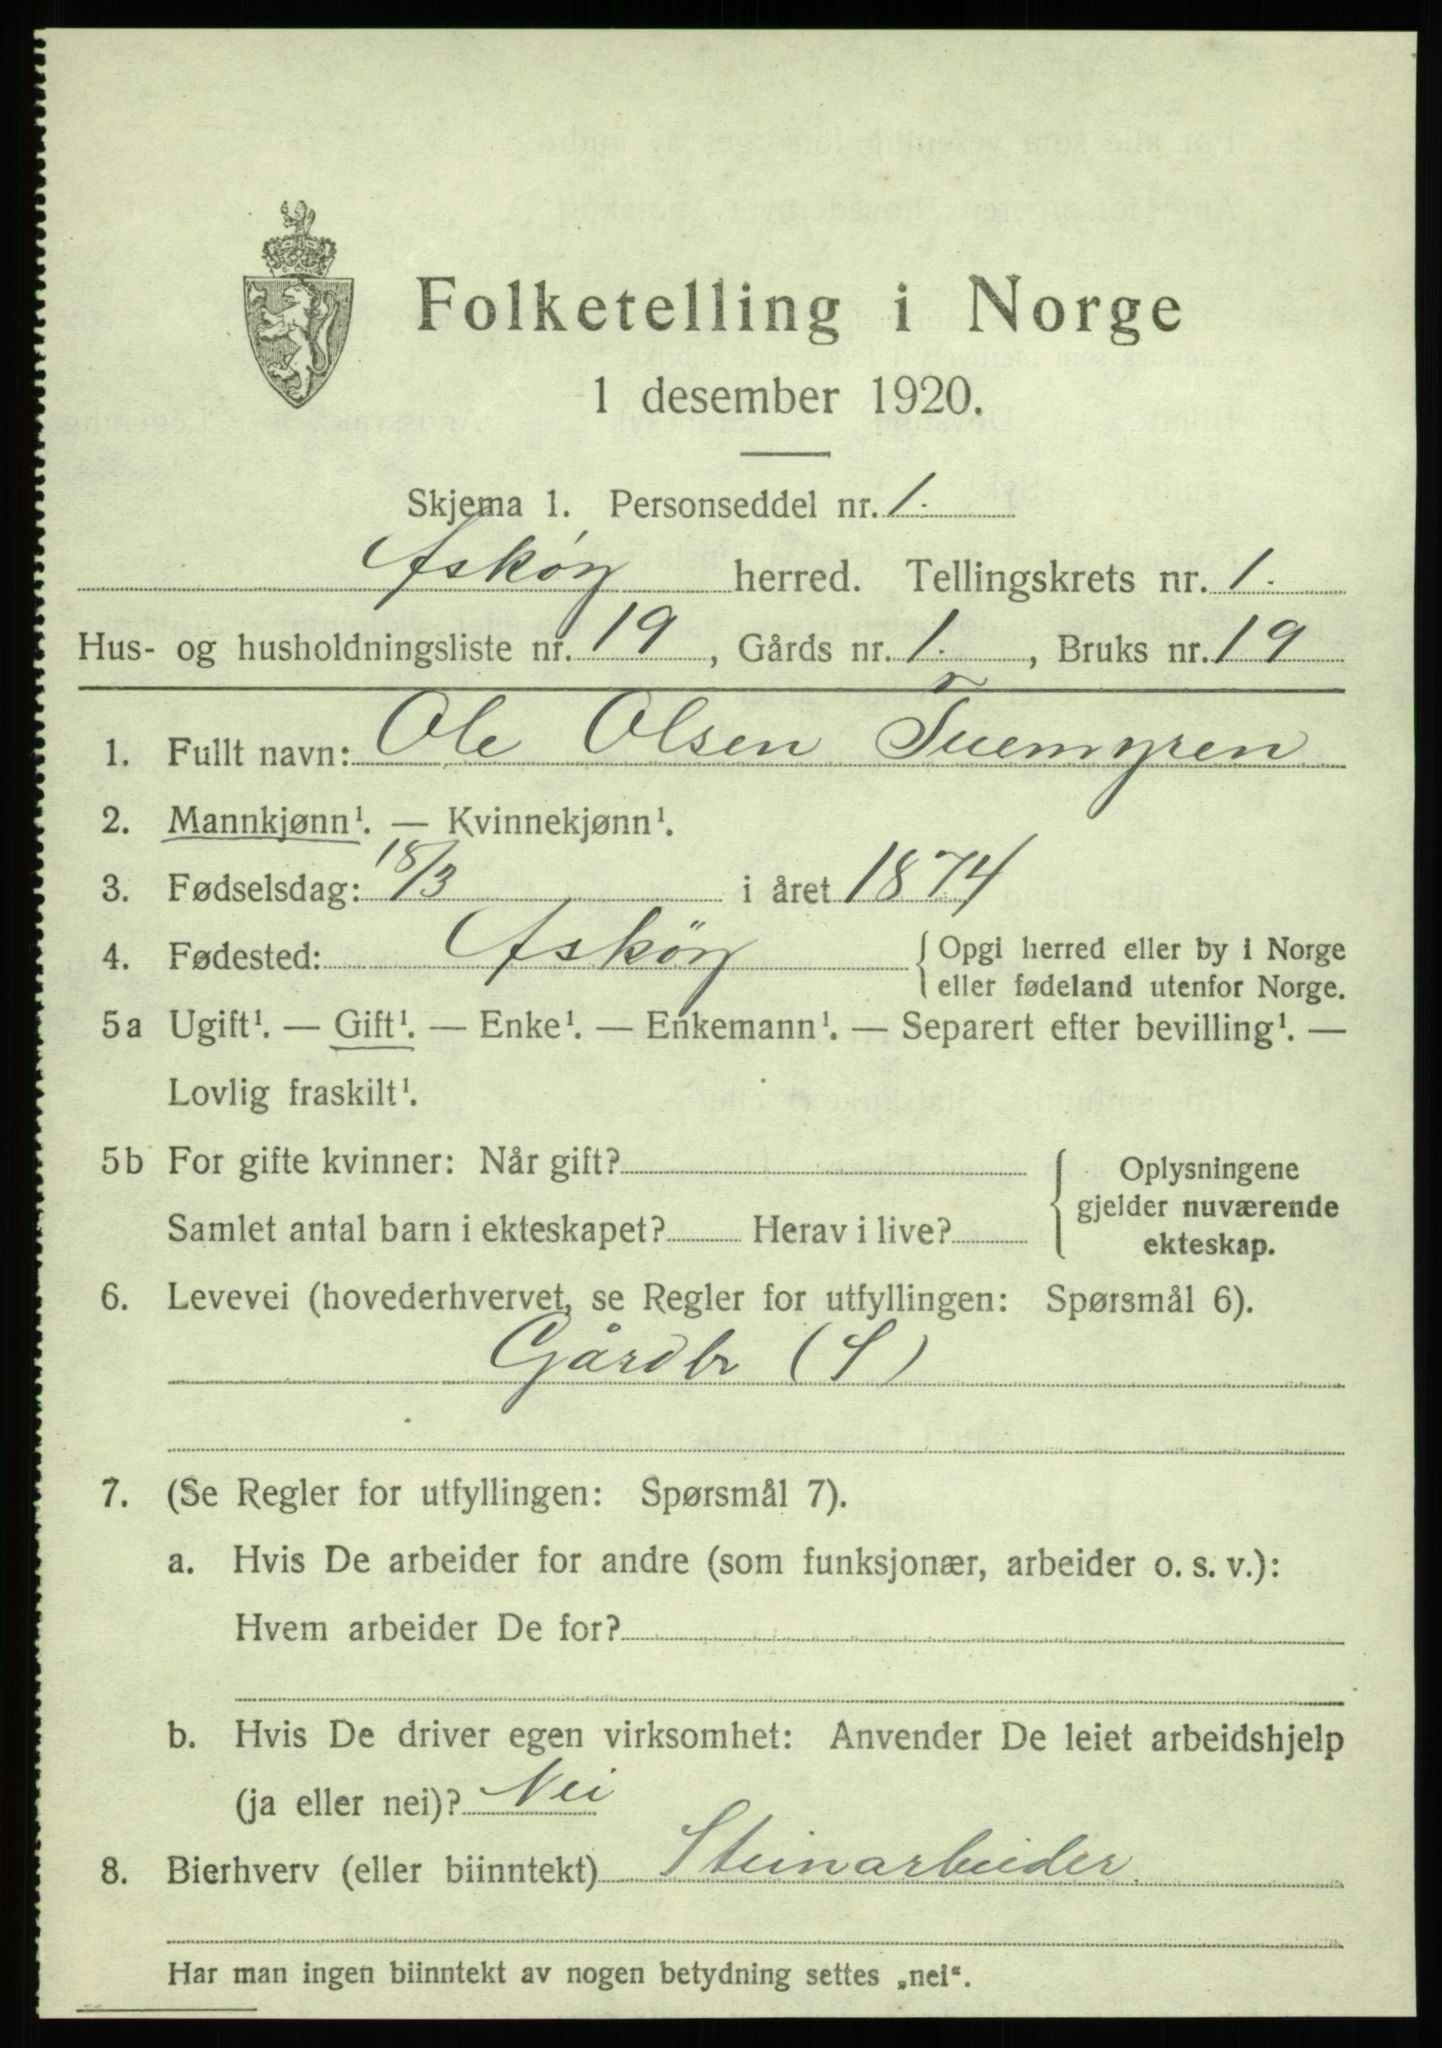 Folketelling i Norge
1 desember 1920.
Skjema 1. Personseddel nr. 1.
Askøy herred. Tellingskrets nr. 1.
Hus- og husholdningsliste nr. 19, Gårds nr. 1., Bruks nr. 19
1. Fullt navn: Ole Olsen Tuemyren
2. Mannkjønn¹. — Kvinnekjønn¹.
3. Fødselsdag: 18/3 i året 1874
4. Fødested: Askøy { Opgi herred eller by i Norge
eller fødeland utenfor Norge.
5a Ugift¹. — Gift¹. — Enke¹. — Enkemann¹. — Separert efter bevilling¹. —
Lovlig fraskilt¹.
5b For gifte kvinner: Når gift? { Oplysningene
gjelder nuværende
Samlet antal barn i ekteskapet? Herav i live?
ekteskap.
6. Levevei (hovederhvervet, se Regler for utfyllingen: Spørsmål 6).
Gårdbr (S)
7. (Se Regler for utfyllingen: Spørsmål 7).
a. Hvis De arbeider for andre (som funksjonær, arbeider o. s. v.):
Hvem arbeider De for?
b. Hvis De driver egen virksomhet: Anvender De leiet arbeidshjelp
(ja eller nei)? Nei
8. Bierhverv (eller biinntekt) Steinarbeider
Har man ingen biinntekt av nogen betydning settes „nei“.